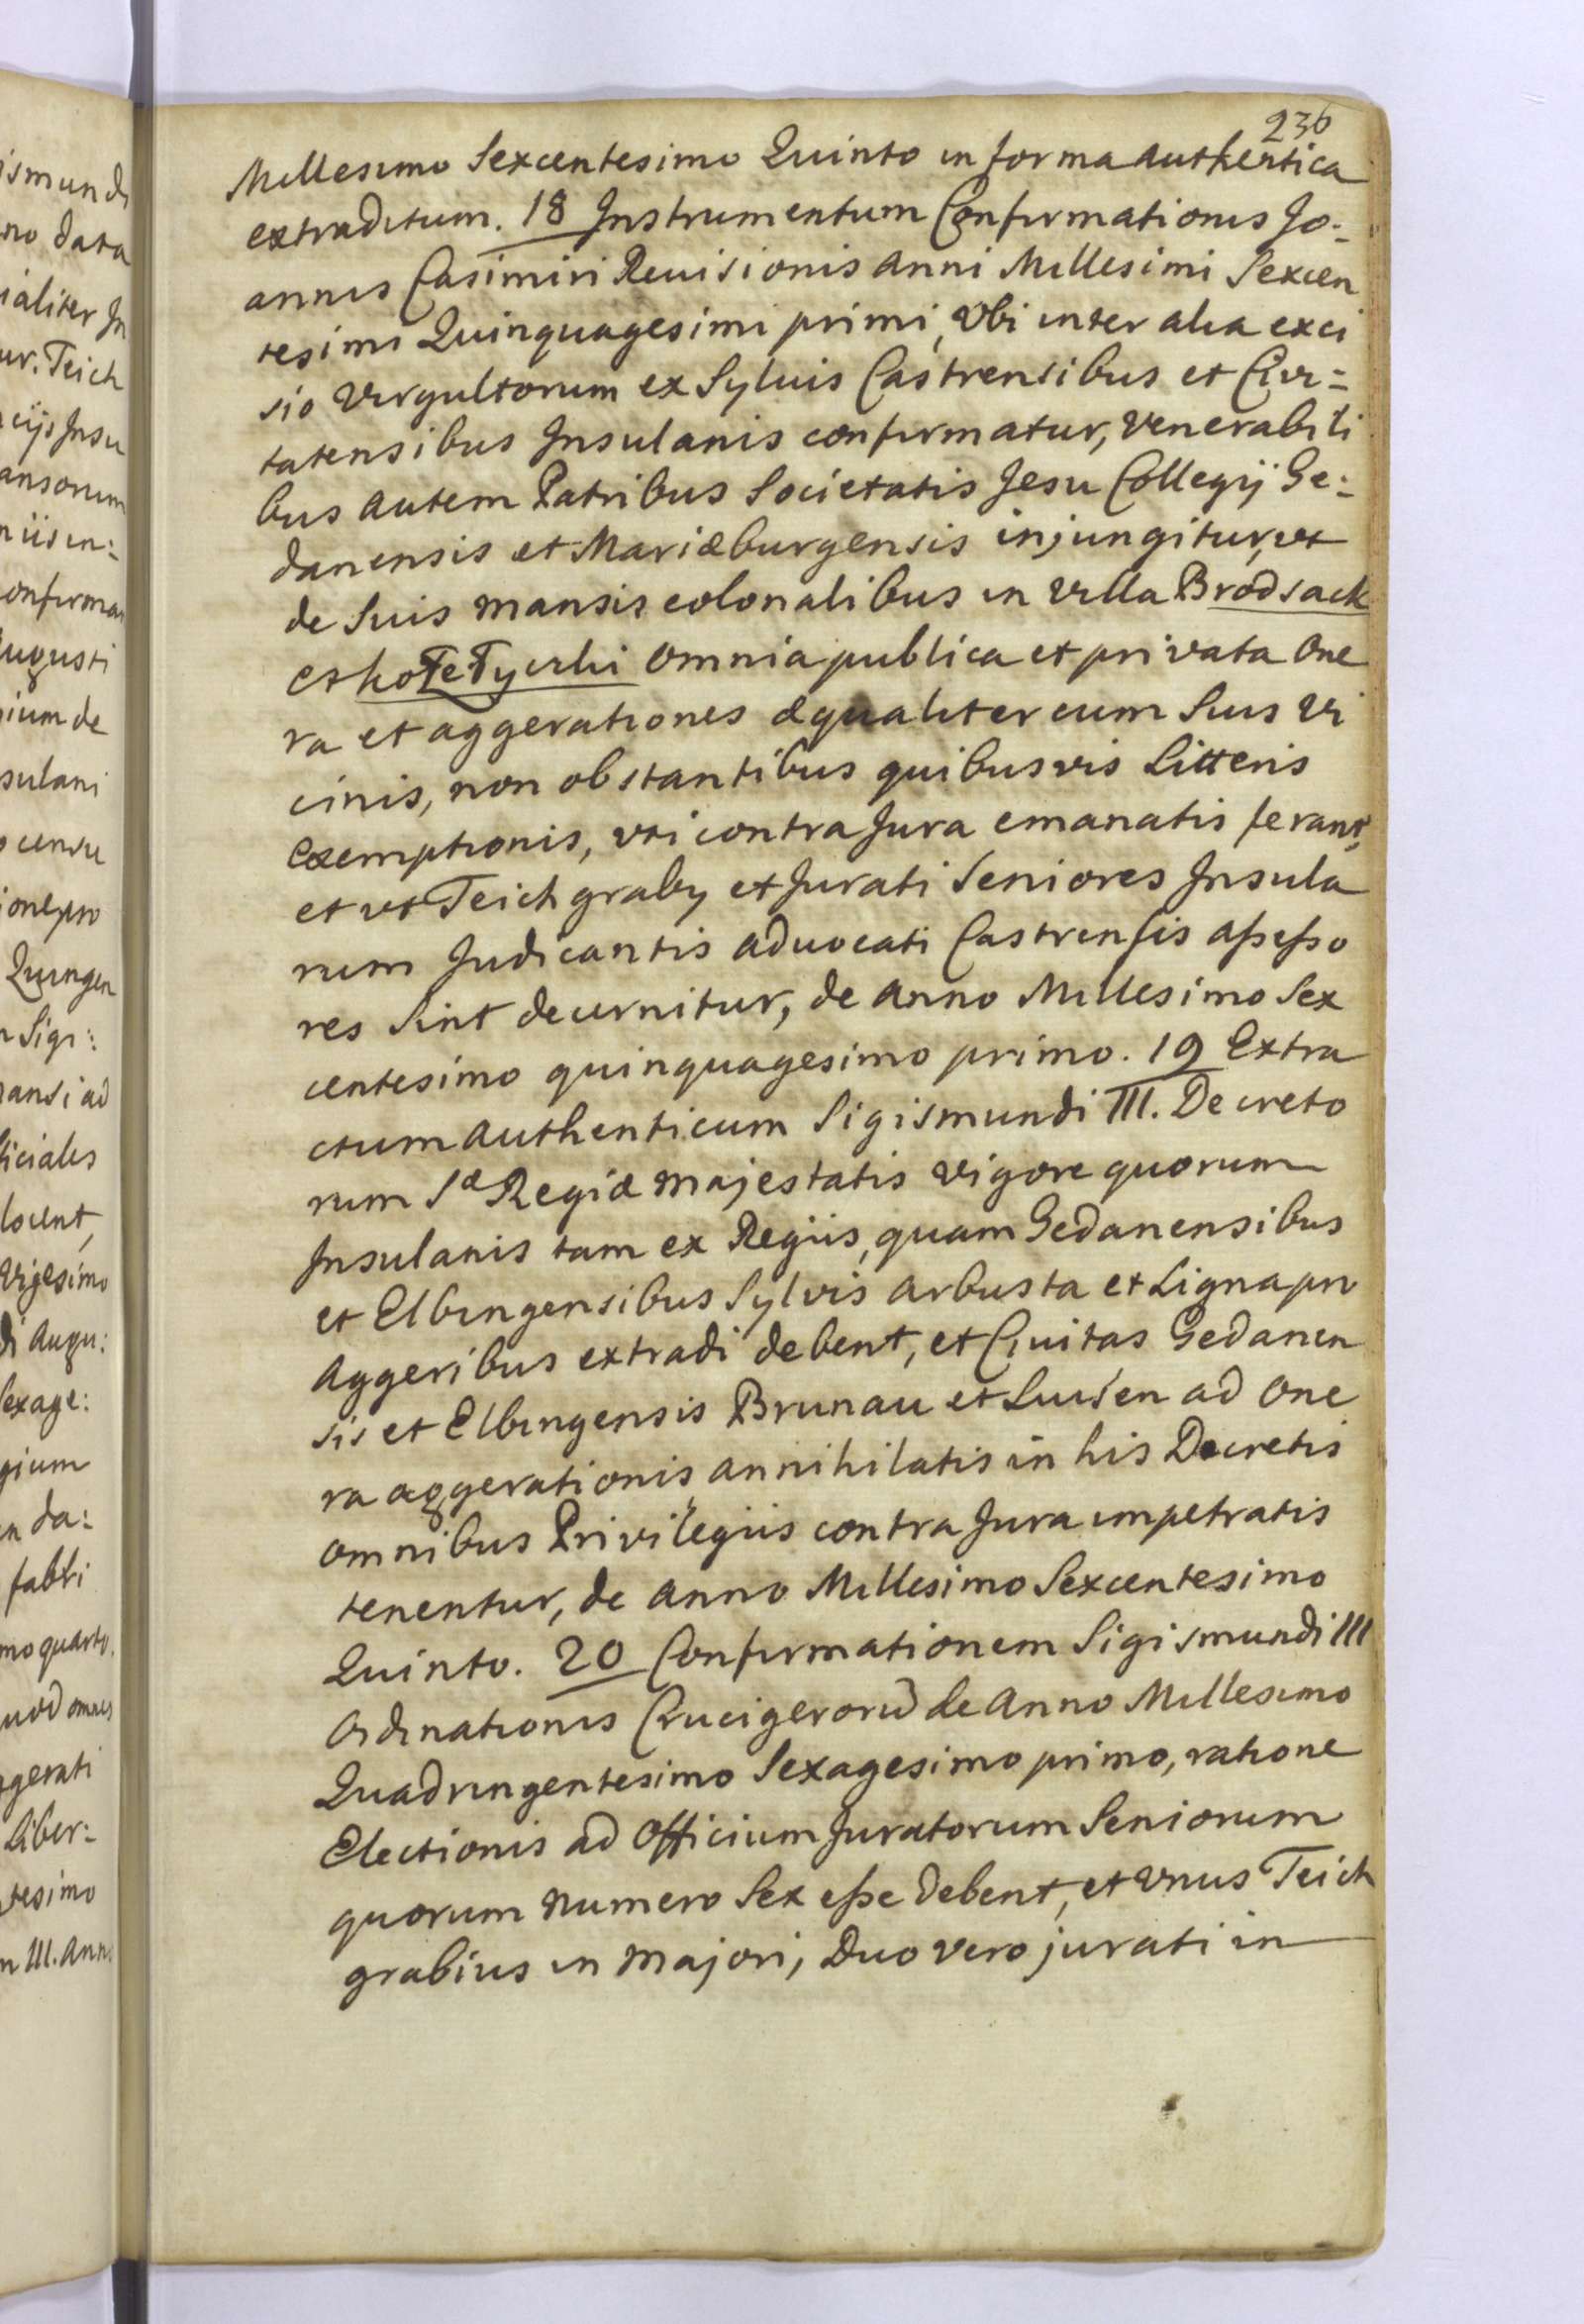 236
Millesimo Sexcentesimo Quinto in forma authentica
extraditum. 18 Instrumentum Confirmationis Jo:
annis Casimiri Reuisionis anni Millesimi Sexcen
tesimi Quinquagesimi primi, Vbi inter alia exci
sio Virgultorum ex Syluis Castrensibus et Civi=
tatensibus Insulanis confirmatur, Venerabili
bus autem Patribus Societatis Jesu Collegij Ge:
danensis et Mariæburgensis injungitur, vt
de Suis mansis colonalibus in Villa Brodsack
omnia publica et privata One
ra et aggerationes æqualiter cum Suis Vi
cinis, non obstantibus quibusvis Litteris
Exemptionis, vti contra Jura emanatis ferant,
et vt Teichgraby et Jurati Seniores Insula
rum Judicantis aduocati Castrensis aßeßo
res Sint decernitur, de anno Millesimo Sex
centesimo quinquagesimo primo. 19 Extra
ctum authenticum Sigismundi III. Decreto
rum Sæ Regiæ Majestatis Vigore quorum
Insulanis tam ex Regiis, quam Gedanensibus
et Elbingensibus Sylvis arbusta et Ligna pro
Aggeribus extradi debent, et Ciuitas Gedanen
sis et Elbingensis Brunau et Luisen ad One
ra aggerationis annihilatis in his Decretis
omnibus Privilegiis contra Jura impetratis
tenentur, de anno Millesimo Sexcentesimo
Quinto. 20 Confirmationem Sigismundi III
Ordinationis Crucigerorū de Anno Millesimo
Quadringentesimo Sexagesimo primo, ratione
Electionis ad Officium Juratorum Seniorum
quorum numero Sex eße debent, et Vnus Teich
grabius in majori, Duo vero jurati in